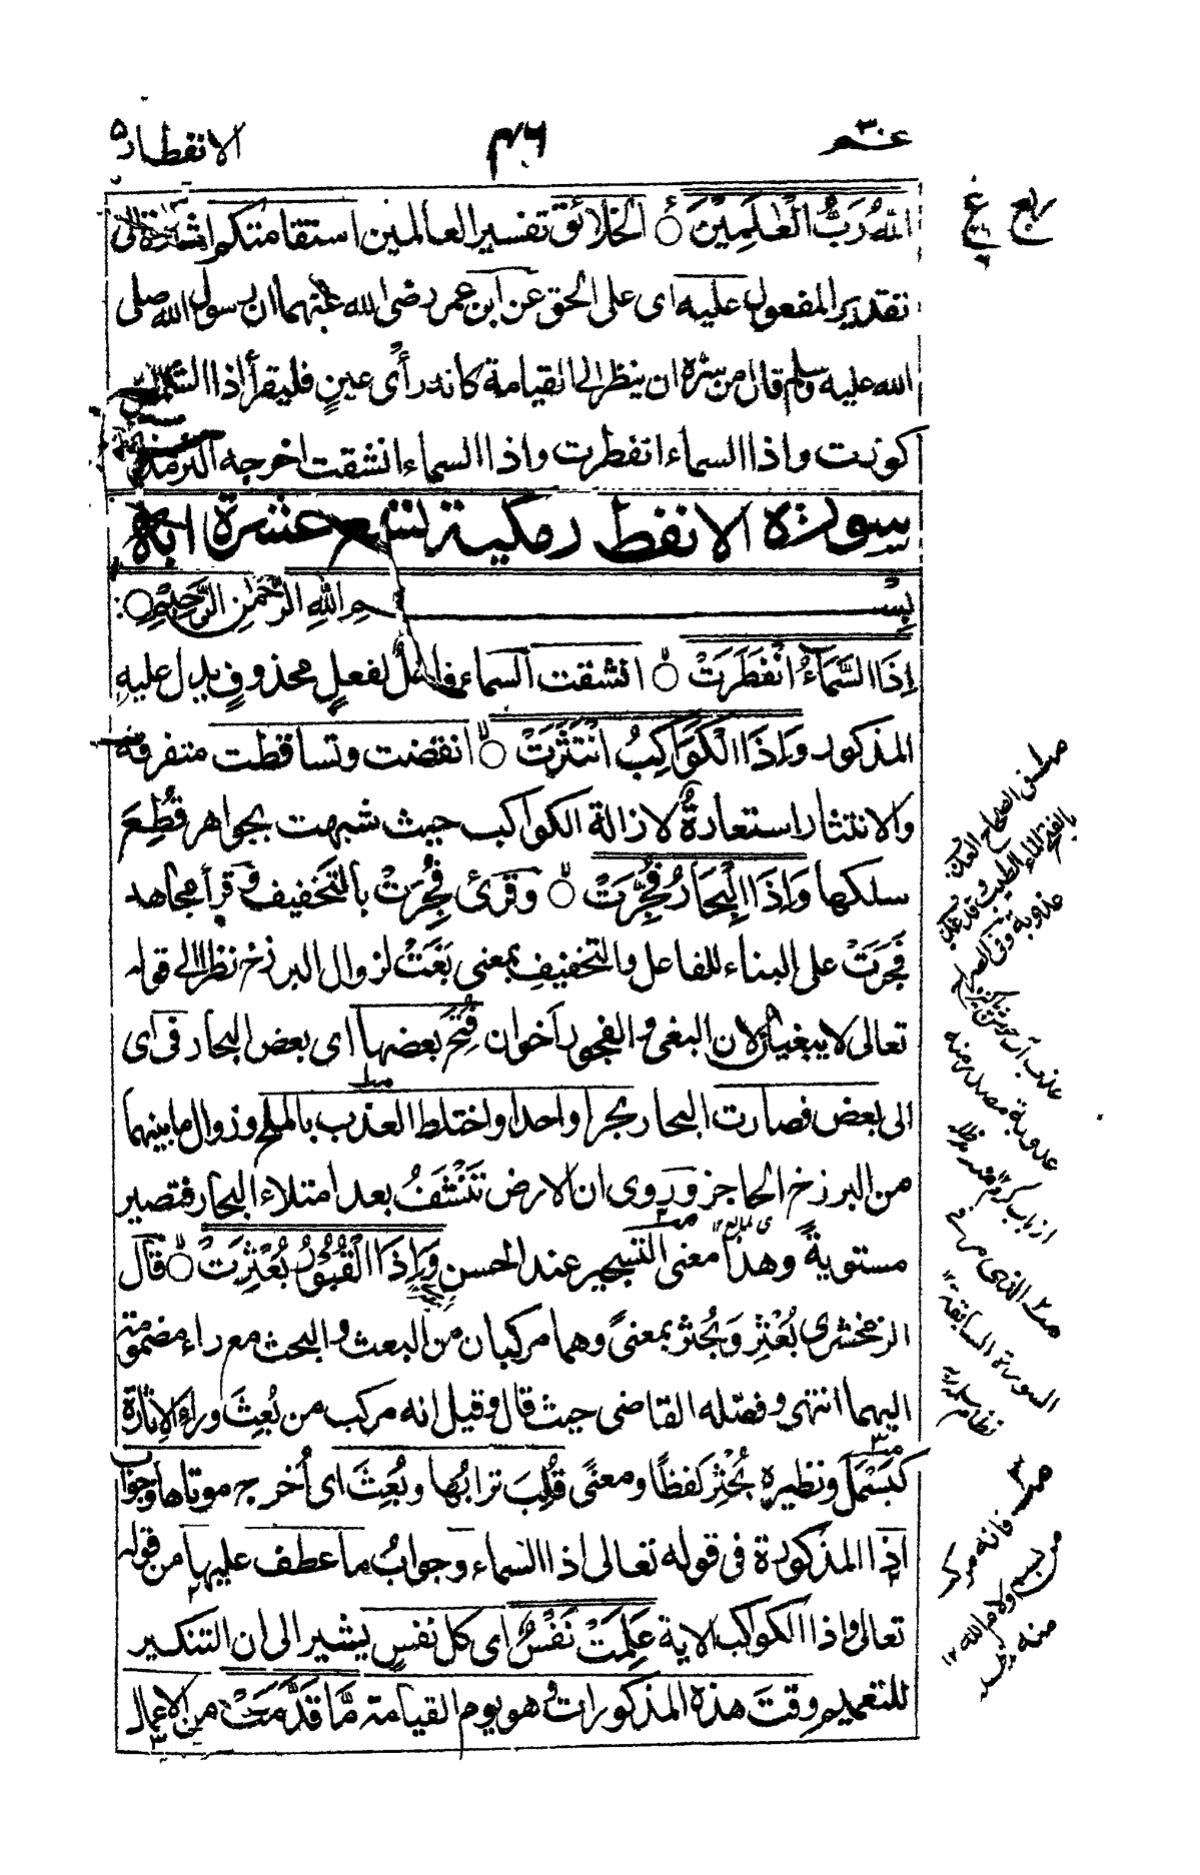 عم ٣٠
٤٠٦
الانفطار
ربع
اللهُ رَبُّ الْعٰلَمِيْنَ الخلائق تفسير العالمين استقامتكم اشارة الى
تقدير المفعول عليه اى على الحق عن ابن عمر رضى الله عنهما ان رسول الله صلى
الله عليه وسلم قال من سره ان ينظر الى القيامة كانه رأى عينٍ فليقرأ اذا الشمس
كورت واذا السماء انفطرت واذا السماء انشقت اخرجه الترمذى
سورة الانفطار مكية تسع عشرة اية
بِسْمِ اللهِ الرَّحْمٰنِ الرَّحِيْمِ
اِذَا السَّمَآءُ انْفَطَرَتْ انشقت السماء فاعل لفعلٍ محذوفٍ يدل عليه
المذكور وَاِذَا الْكَوَاكِبُ انْتَثَرَتْ انقضت وتساقطت متفرقة
والانتثار استعارةٌ لازالة الكواكب حيث شبهت بجواهر قُطِعَ
سلكها وَاِذَا الْبِحَارُ فُجِّرَتْ وقرئ فُجِرَتْ بالتخفيف وقرأ مجاهد
فَجَرَتْ على البناء للفاعل والتخفيف بمعنى بَغَتْ لزوال البرزخ نظرا الى قوله
تعالى لا يبغيان لان البغى والفجور اخوان فُتِحَ بعضها اى بعض البحار فى اى
الى بعض فصارت البحار بحرا واحدا واختلط العذب بالملح وزوال ما بينهما
من البرزخ الحاجز وروى ان الارض تَنْشَفُ بعد امتلاء البحار فتصير
مستويةً وهذا معنى التسجير عند الحسن وَاِذَا الْقُبُوْرُ بُعْثِرَتْ قال
الزمخشرى بُعْثِرَ وَبُحْثِرَ بمعنىً وهما مركبان من البعث والبحث مع راء مضمومة
اليهما انتهى وفصّله القاضى حيث قال وقيل انه مركب من بُعِثَ وراء الاثارة
كبَسْمَلَ ونظيره بُحْثِرَ لفظًا ومعنًى قُلِبَ ترابُها وبُعِثَ اى اُخرج موتاها وجواب
اذا المذكورة فى قوله تعالى اذا السماء وجوابُ ما عطف عليها من قوله
تعالى واذا الكواكب الاية عَلِمَتْ نَفْسٌ اى كل نفسٍ يشير الى ان التنكير
للتعميم وقتَ هذه المذكورات وهو يوم القيامة مَّا قَدَّمَتْ من الاعمال
عذوبة
السورة السابقة ١٢
فانه مركب
من بسم ولام الله ١٢
منه